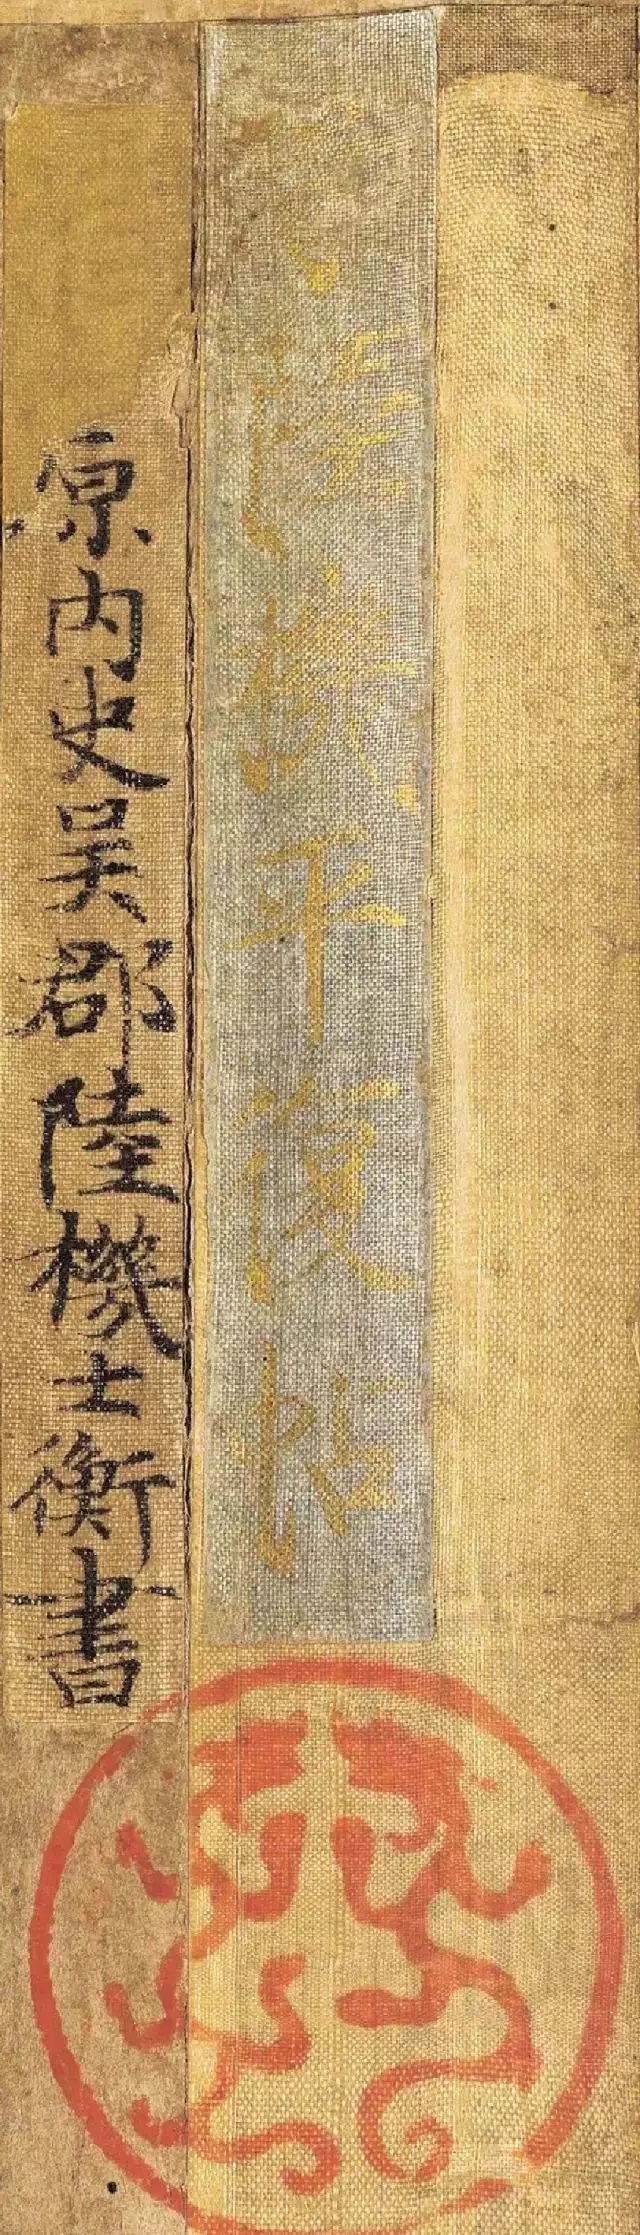 陸機平復帖
原內史吳郡陸機士衡書